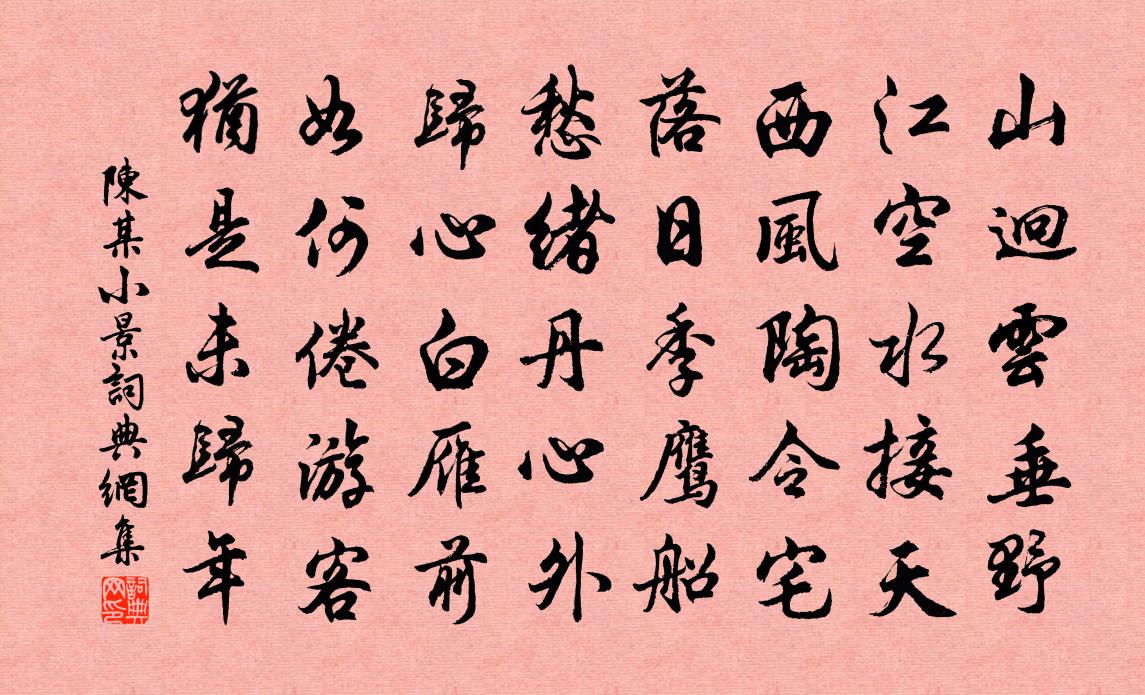 山迥雲垂野
江空水接天
西風陶令宅
落日季鷹船
愁緒丹心外
歸心白雁前
如何倦游客
猶是未歸年
陳某小景詞典網集
詞典網印